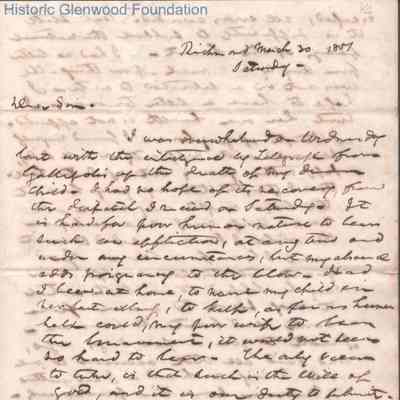 Historic Glenwood Foundation
Richmond March 30 1851
Saturday -
Dear Son.
I was overwhelmed on Wednesday
last with the intelligence by Telegraph from
Gallipolis of the death of my dear
child. I had no hope of its recovery from
the dispatch I recd on Saturday. It
is hard for poor human nature to bear
such an affliction, at any time and
under any circumstances, but my absence
adds poignancy to the blow. Had
I been at home, to nurse my child in
, to help, as far as human
help could, my poor wife to bear
the bereavement, it would not seem
so hard to bear. The only view
to take, is that such is the will of
God, and it is our duty to submit.